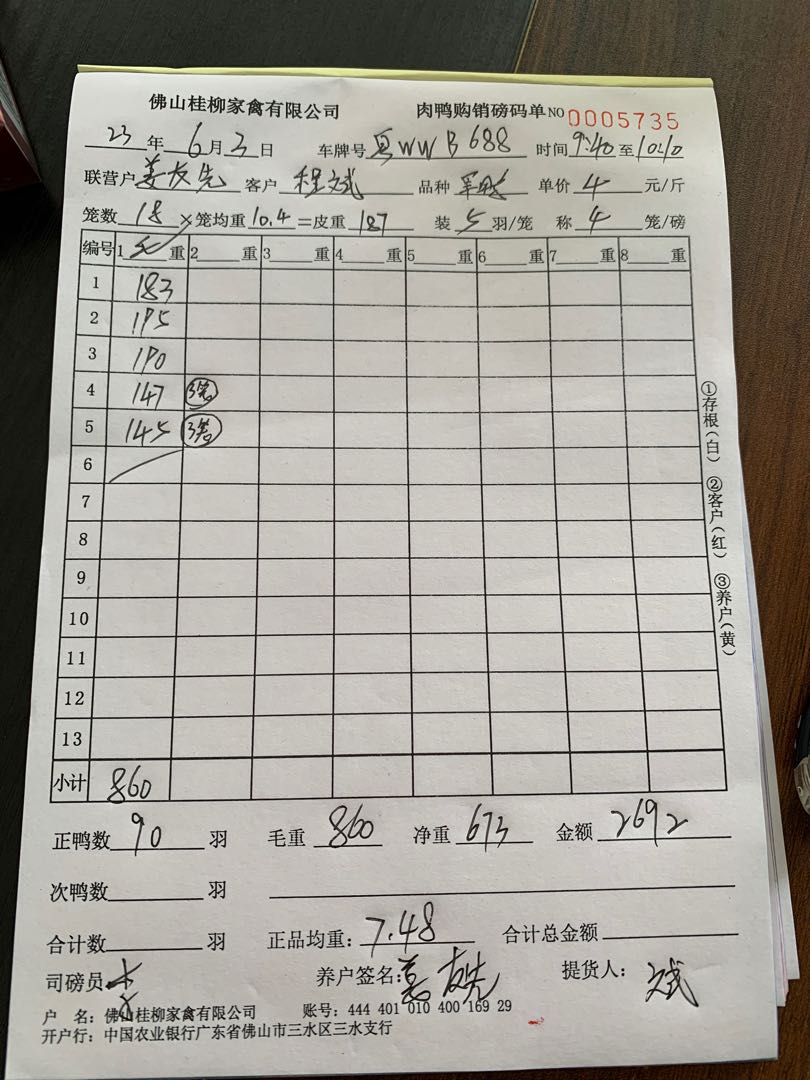 佛山桂柳家禽有限公司 肉鸭购销磅码单 NO 0005735
23 年 6 月 3 日 车牌号 粤WWB688 时间 9:40 至 10:10
联营户 姜友先 客户 程斌 品种 单价 4 元/斤
笼数 18 ×笼均重 10.4 =皮重 187 装 5 羽/笼 称 4 笼/磅
编号 1 毛 重 2 重 3 重 4 重 5 重 6 重 7 重 8 重
1 183
2 195
3 190
4 147 3笼
5 145 3笼
6
7
8
9
10
11
12
13
小计 860
①存根(白) ②客户(红) ③养户(黄)
正鸭数 90 羽 毛重 860 净重 673 金额 2692
次鸭数 羽
合计数 羽 正品均重: 7.48 合计总金额
司磅员 养户签名: 姜友先 提货人: 斌
户 名: 佛山桂柳家禽有限公司 账号: 444 401 010 400 169 29
开户行: 中国农业银行广东省佛山市三水区三水支行